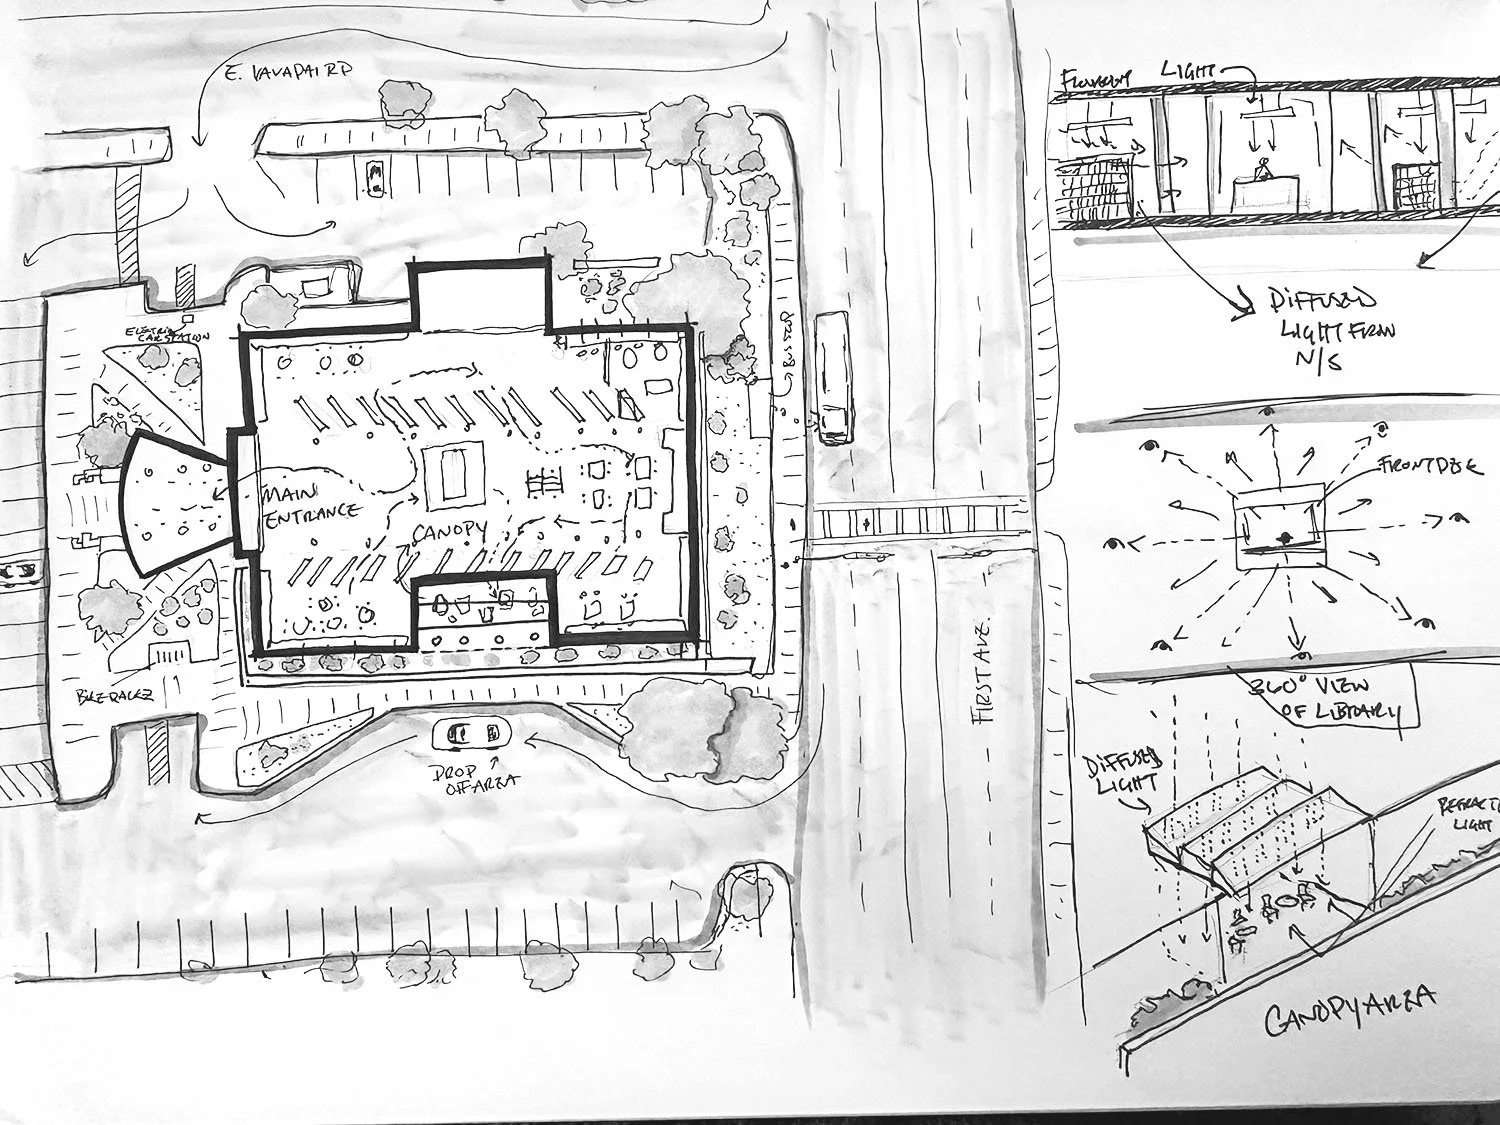 E. YAVAPAI RD
ELECTRIC
CAR STATION
BUS STOP
MAIN
ENTRANCE
CANOPY
FIRST AVE.
BIKE RACKZ
DROP
OFF AREA
LIGHT
DIFFUSED
LIGHT FROM
N/S
FRONT DESK
360° VIEW
OF LIBRARY
DIFFUSED
LIGHT
LIGHT
CANOPY AREA